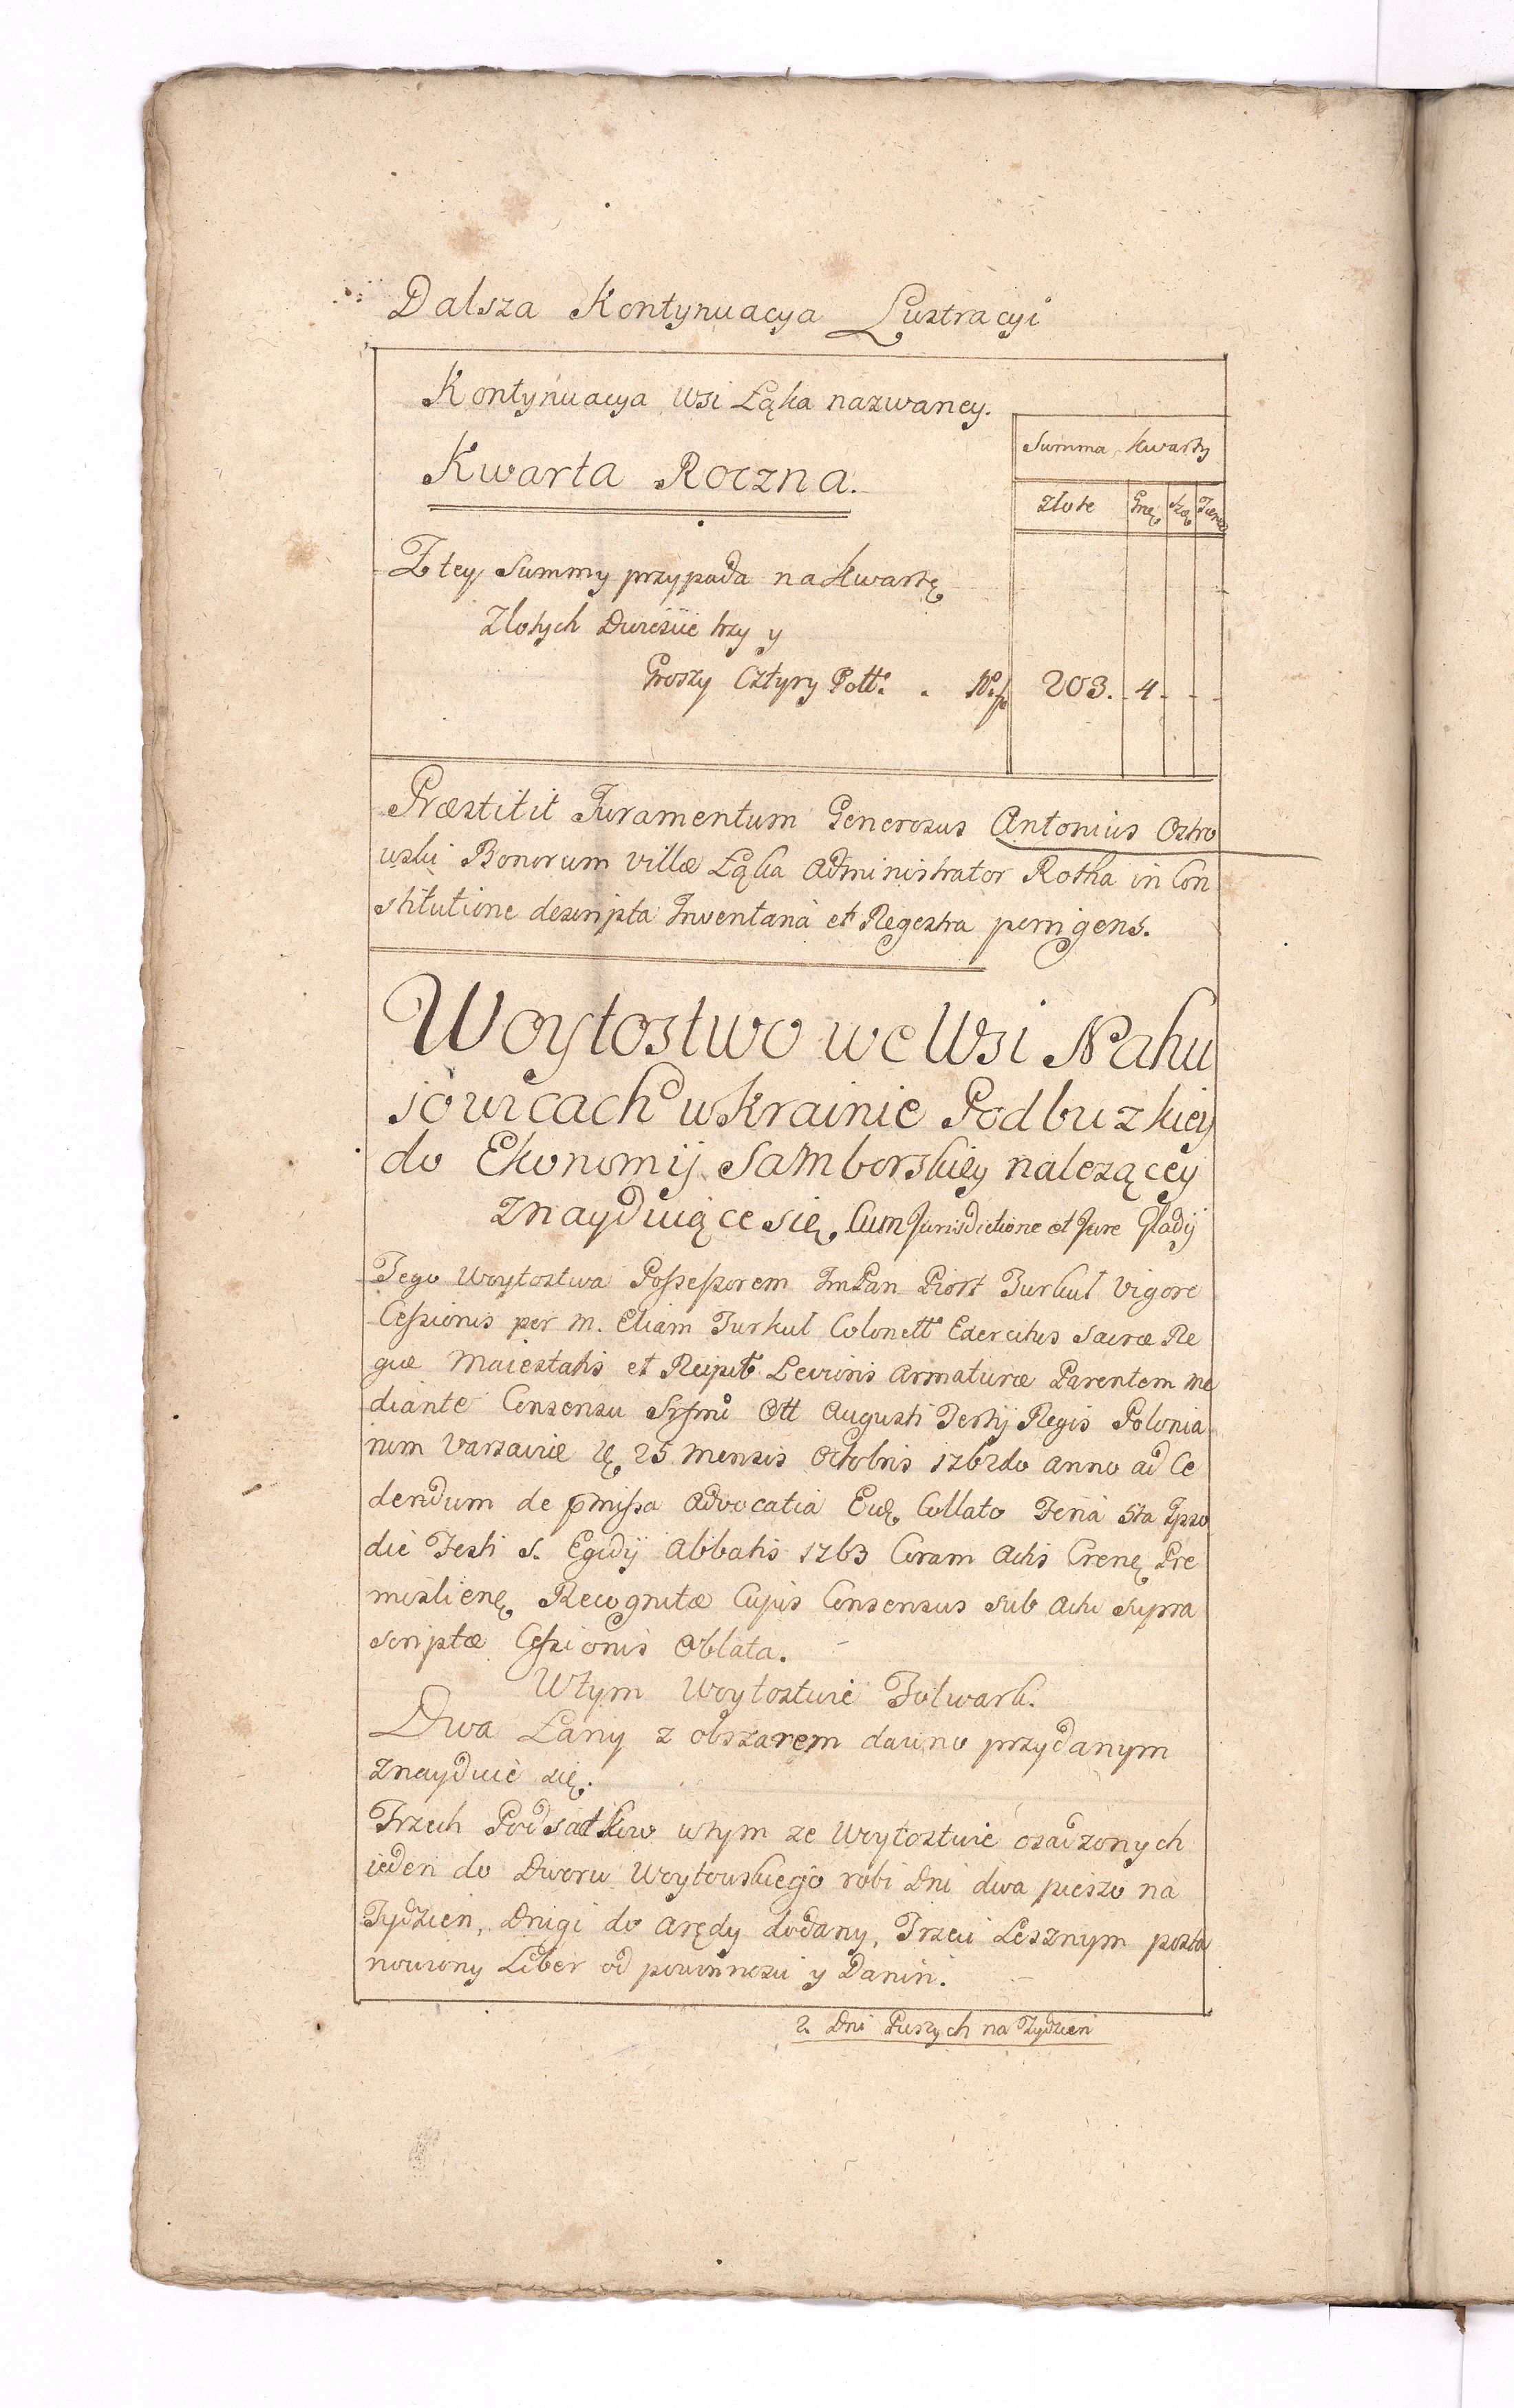 Dalsza Kontynuacya Lustracyi
Kontynuacya Wsi Łąka nazwaney.
Summa Kwarty
Kwarta Roczna.
Złote
Z tey Summy przypada na Kwartę
Złotych Dwieście trzy y
Groszy Cztyry Poll: . Nr 203. 4 - - -
Præstitit Juramentum Generosus Antonius Ostro
wski Bonorum Villæ Łąka Administrator Rotha in Con
stitutione descripta Inventaria et Regestra porrigens.
Woytostwo we Wsi Nahu
iowicach w Krainie Podbuzkiey
do Ekonomij Samborskiey nalezącey
znayduiące się, Cum Jurisdictione et Jure Gladij
Tego Woytostwa Possessorem ImPan Piotr Turkuł Vigore
Cessionis per M. Eliam Turkuł Colonell Exercitus Sacræ Re
giæ Maiestatis et Reipub Levioris Armaturæ Parentem me
diante Consensu Ssmi Oll Augusti Tertij Regis Polonia
rum Varsaviæ 25 Mensis Octobris 1762do anno ad Ce
dendum de pmissa Advocatia Collato Feria 5ta Ipso
die Festi S. Egidij Abbatis 1763 Coram Actis Crenę Pre
mislienę Recognitæ Cujus Consensus sub Actu supra
scriptæ Cessionis Oblata.
W tym Woytostwie Folwark.
Dwa Łany z obszarem dawno przydanym
znayduie się.
Trzech Podsadków w tym ze Woytostwie osadzonych
ieden do Dworu Woytowskiego robi Dni dwa pieszo na
Tydzień, Drugi do arędy dodany, Trzeci Lesznym posta
nowiony Liber od powinności y Danin.
2. Dni Pieszych na Tydzień